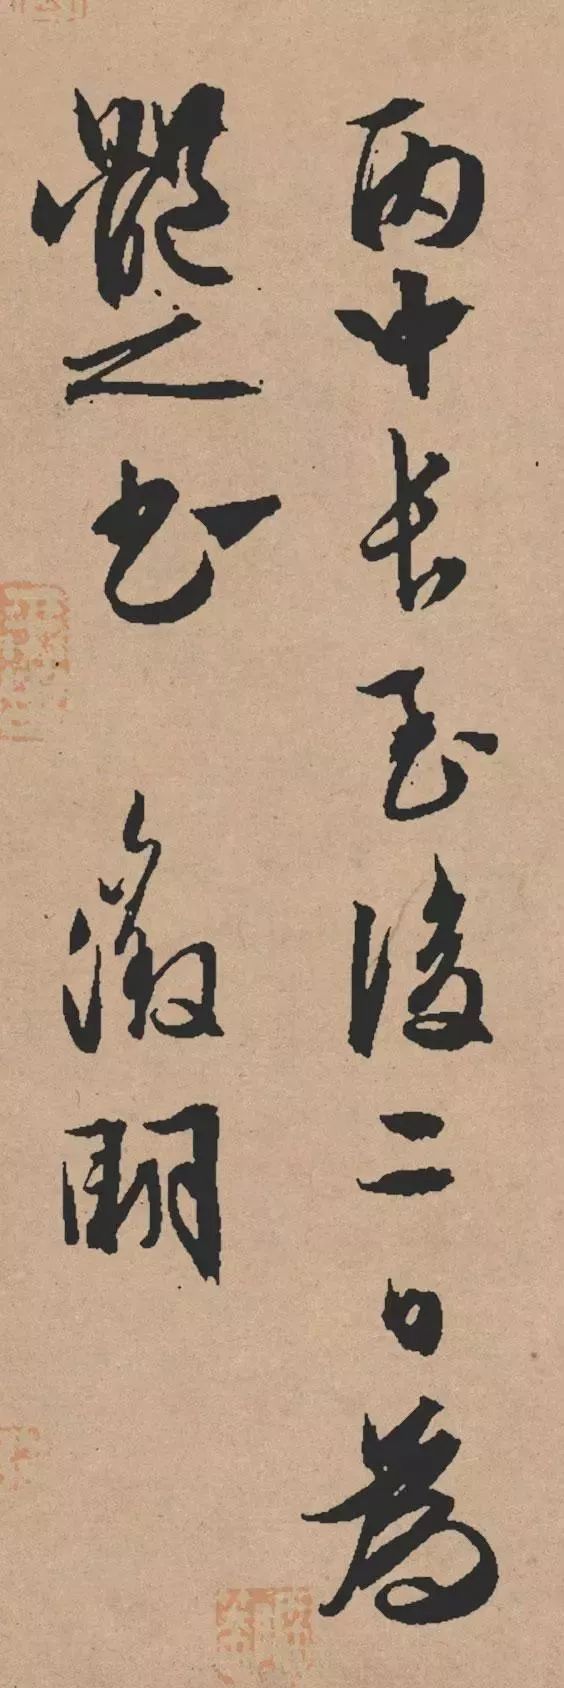 丙申長至後二日為
之書 徵明